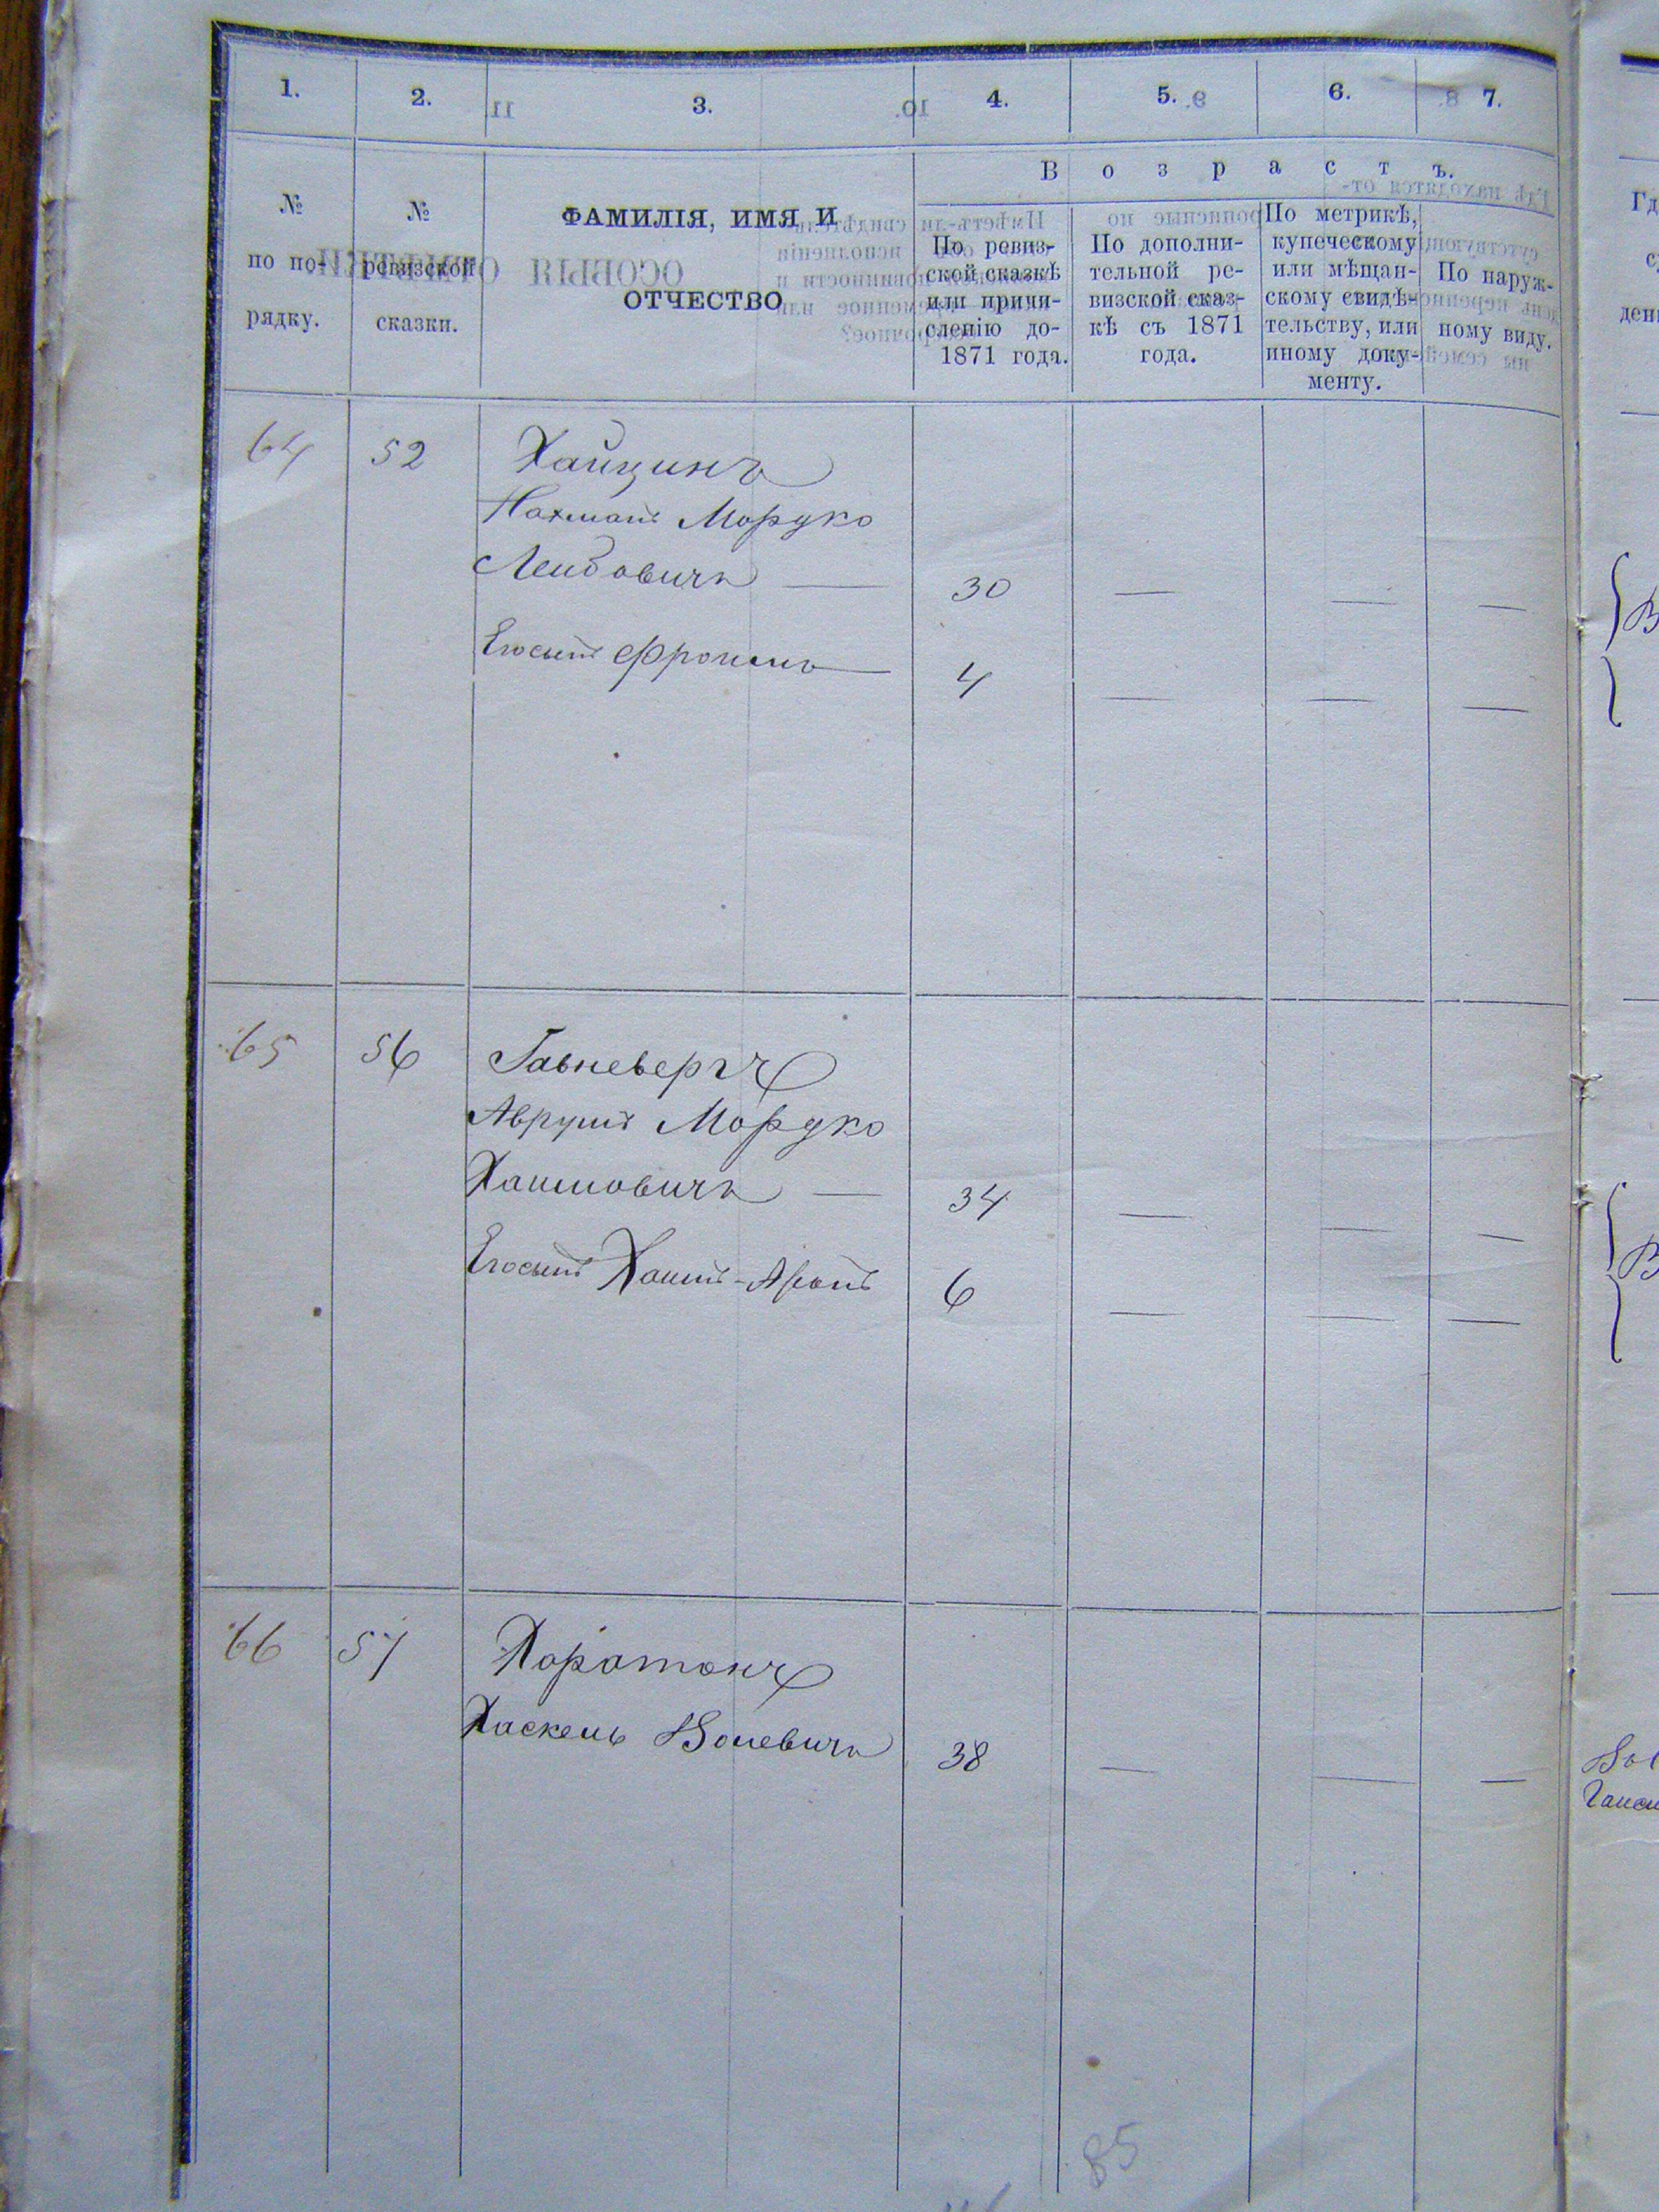 1. 2. 3. 4. 5. 6. 7.
Возрастъ.
№ по по-рядку.
№ ревизской сказки.
ФАМИЛІЯ, ИМЯ И
ОТЧЕСТВО
По ревиз-
ской сказкѣ
или причи-
сленію до-
1871 года.
По дополни-
тельной ре-
визской сказ-
кѣ съ 1871
года.
По метрикѣ,
купеческому
или мѣщан-
скому свидѣ-
тельству, или
иному доку-
менту.
По наруж-
ному виду.
64 52 Хайцинъ
Нахманъ Мордко
Лейбовичъ — 30 — — —
Егосынъ Фроимъ — 4 — — —
65 56
Аврумъ Мордко
Хаимовичъ — 34 — — —
Егосынъ Хаимъ-Аронъ 6 — — —
66 57
Хаскель Волевичъ 38 — — —
85